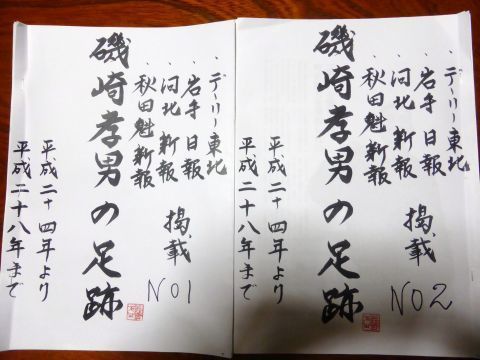 ・デーリー東北
・岩手日報
・河北新報
・秋田魁新報
掲載
磯崎孝男の足跡
平成二十四年より
平成二十八年まで
NO1
・デーリー東北
・岩手日報
・河北新報
・秋田魁新報
掲載
磯崎孝男の足跡
平成二十四年より
平成二十八年まで
NO2